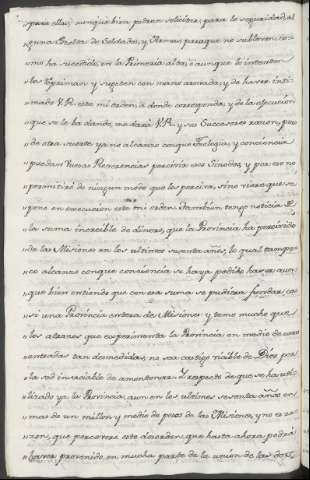 "para ello, aunque bien pudiera solicitar, para la seguridad, al
"guna Escolta de Soldados, y Armas, para que no se subleven co=
"mo ha sucedido en la Provincia alta, ò aunque lo intenten
"los repriman y sujeten con mano armada, y de haver inti=
"mado V.R. esta mi orden à donde corresponde, y de la execucion
"que se le ha dado, me darà V.R. y sus Successores razon, pues
"de otra suerte yo no alcanzo con que Theologia, y conciencia
"puedan Vuesas Reverencias percivir esos Sinodos, y por eso no
"permitirè de ningun modo que los perciva, sino viere que se
"pone en execucion esta mi orden. Tambien tengo noticia de
"la suma increible de dinero, que la Provincia ha percivido
"de las Misiones en los ultimos sesenta años, lo qual tampo=
"co alcanzo con que consciencia se haya podido hazer; aun=
"que bien entiendo que con esa suma se pudiera fundar, ca=
"si una Provincia entera de Misiones y temo mucho que
"los atrasos que experimenta la Provincia en medio de unas
"entradas tan desmedidas, no sea castigo visible de Dios, por
"la sed insaciable de amontonar. Y respecto de que se ha uti=
"lizado ya la Provincia, aun en los ultimos sesenta años en
"mas de un millon y medio de pesos de las Misiones, y no es ra=
"zon, que persevere este desorden, que hasta ahora podrà
"haver provenido en mucha parte de la union de las dos